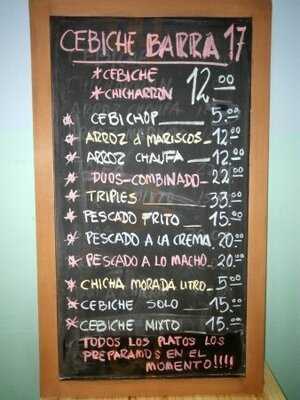 CEBICHE BARRA 17
*CEBICHE
*CHICHARRÓN 12.00
* CEBICHOP 5.00
* ARROZ d MARISCOS 12.00
* ARROZ CHAUFA 12.00
* DUOS-COMBINADO 22.00
* TRIPLES 33.00
* PESCADO FRITO 15.00
* PESCADO A LA CREMA 20.00
* PESCADO A LO MACHO 20.00
* CHICHA MORADA LITRO 5.00
* CEBICHE SOLO 15.00
* CEBICHE MIXTO 15.00
TODOS LOS PLATOS LOS
PREPARAMOS EN EL
MOMENTO!!!!